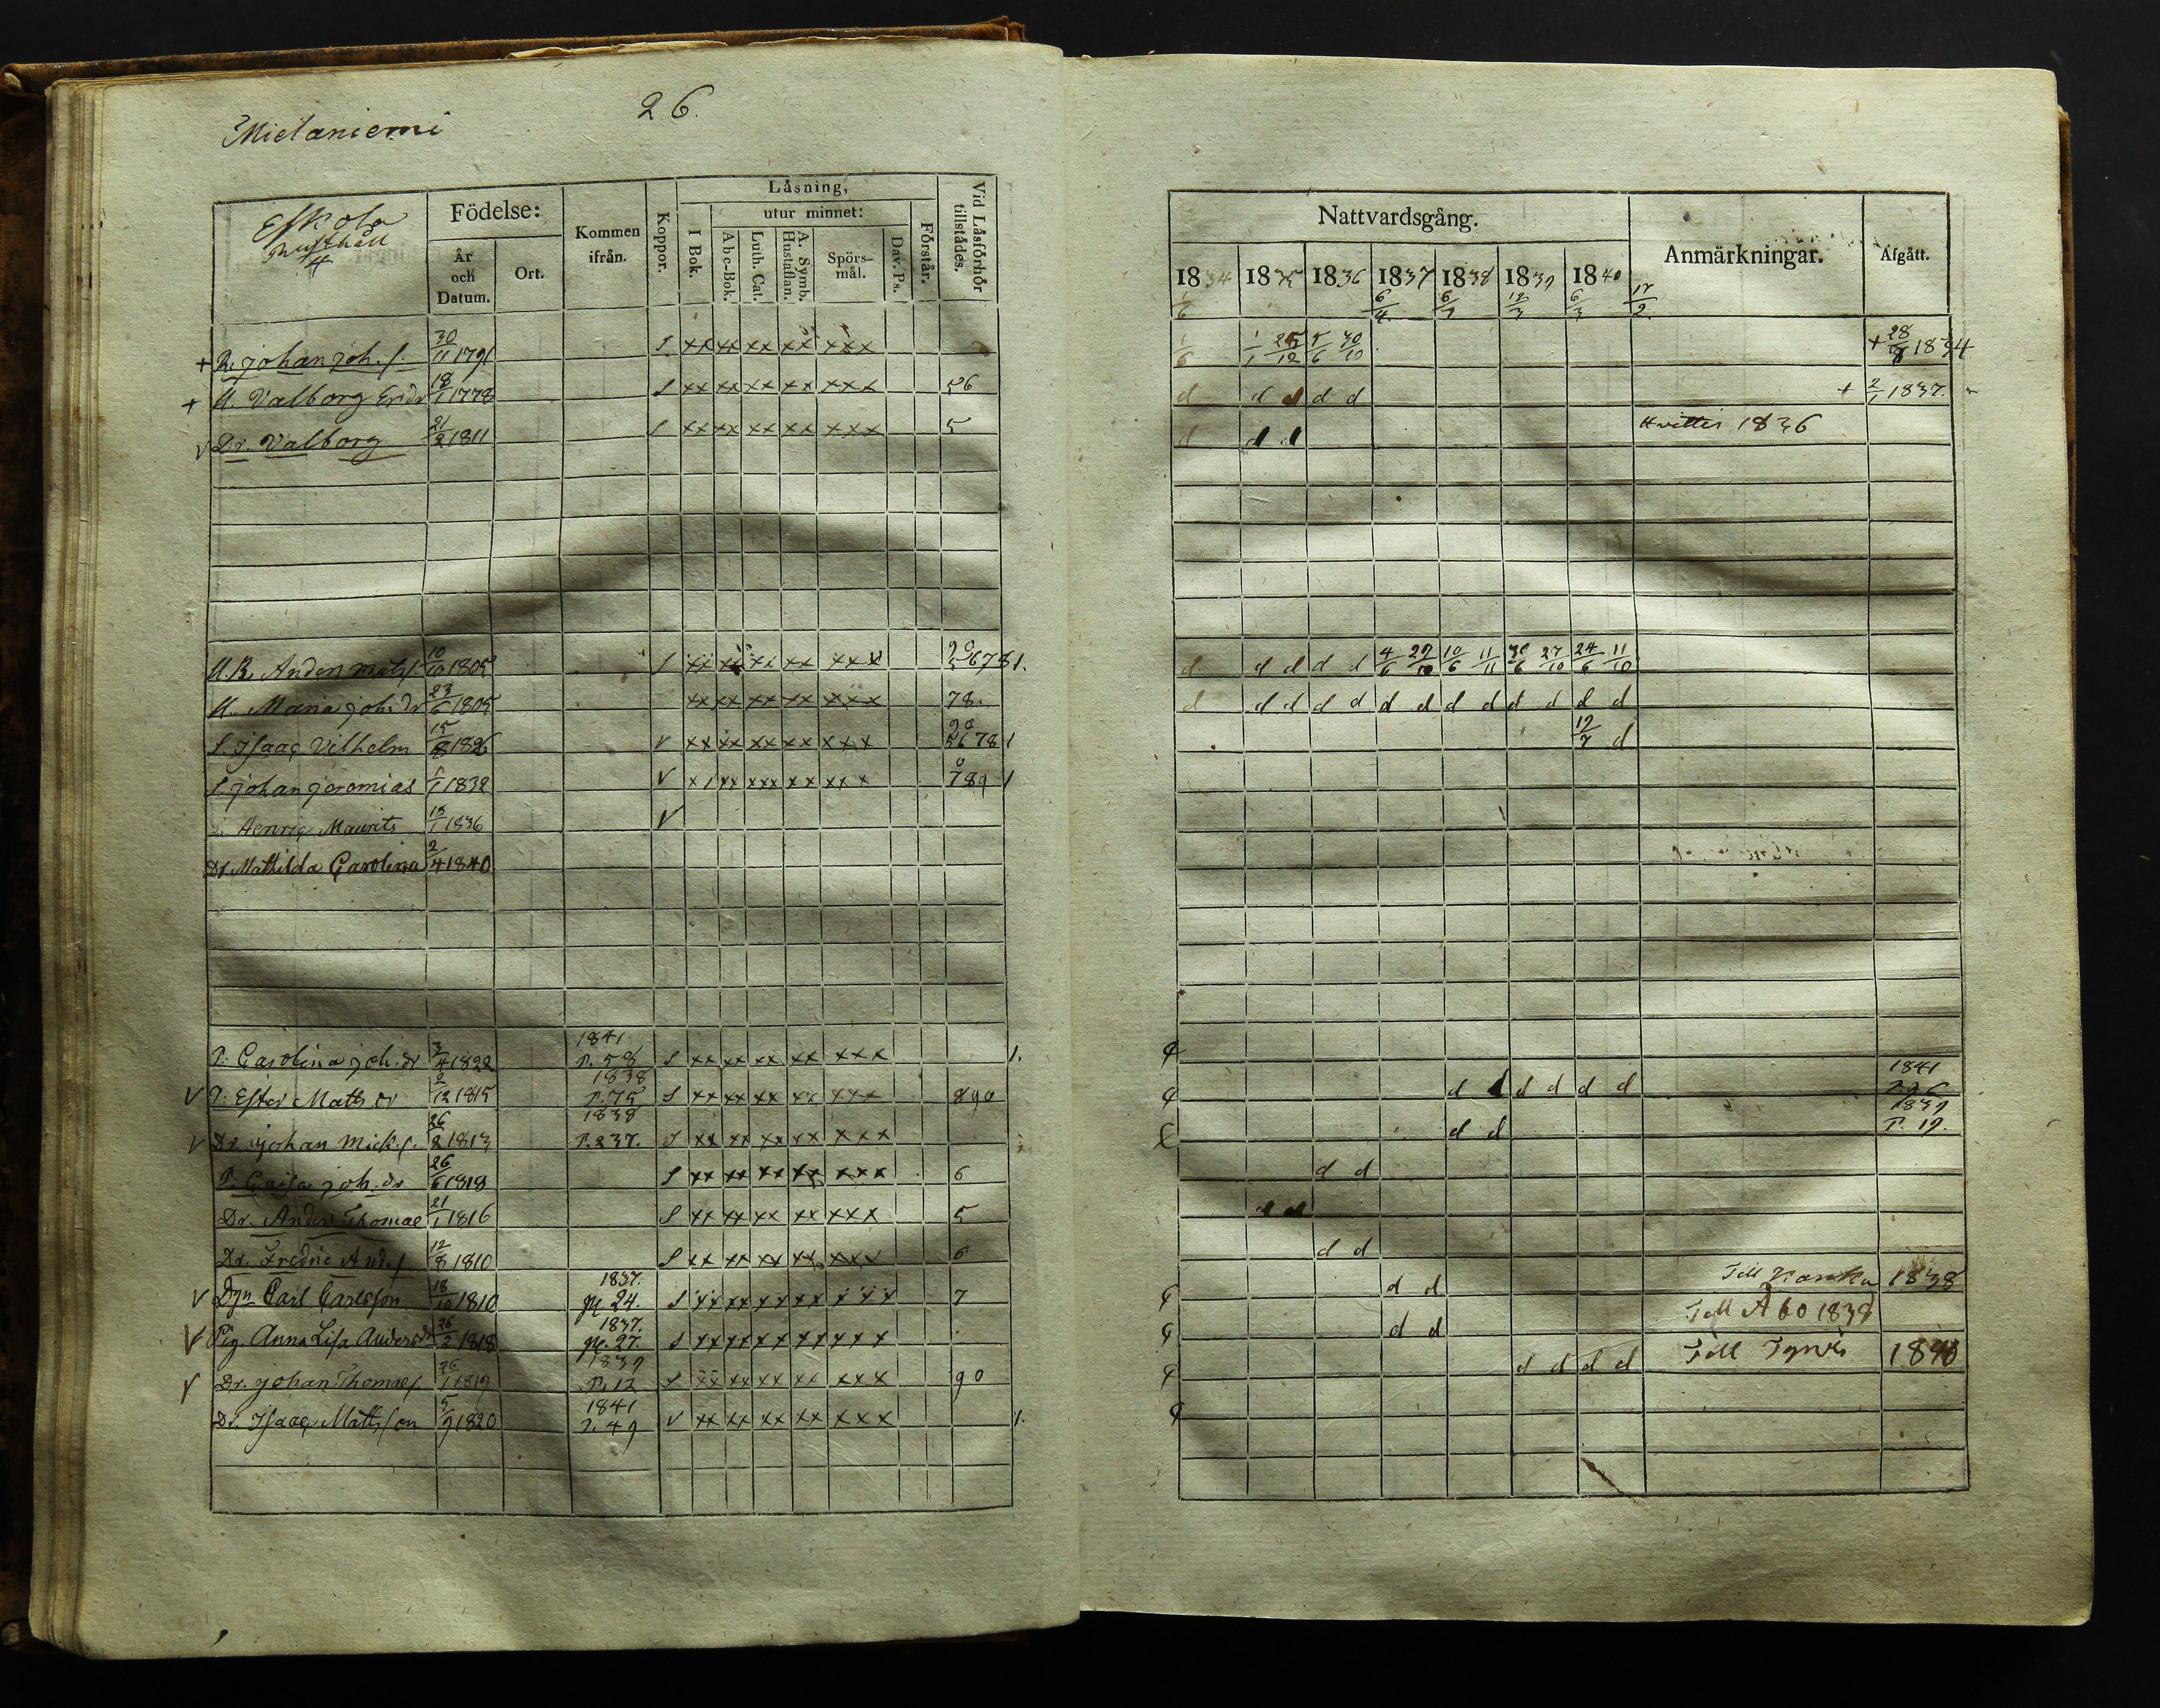 26.
Mietaniemi
Eskola
Rusthåll
4
Födelse:
År och Datum.
Ort.
Kommen ifrån.
Koppor.
Läsning,
utur minnet:
I Bok.
Abc-Bok.
Luth. Cat.
A. Symb. Hustaflan.
Spörsmål.
Dav. Ps.
Förstår.
Vid Läsförhör tillstådes.
Nattvardsgång.
1834 1835 1836 1837 1838 1839 1840
Anmärkningar.
Afgått.
+ R. Johan Joh. s. 30/11 1791 S xx xx xx xx xxx
+ H. Valborg Eric dr 18/1 1778 S xx xx xx xx xxx 56 d d d d d + 2/1 1837.
V Dr. Valborg 21/2 1811 S xx xx xx xx xxx 5 d d d Hvittis 1836
U. R. Anders Mats s. 10/10 1805 S xx xx xx xx xxx 90 5678 1. d d d d d 4/6 29/10 10/6 11/11 30/6 27/10 24/6 11/10
H. Maria Joh. dr 23/6 1805 xx xx xx xx xxx 78. d d d d d d d d d d d d d
S. Isaac Vilhelm 15/8 1826 V xx xx xx xx xxx 90 5678 1 19/7 d
S. Johan Jeremias 1/1 1832 V x/ xx xxx xx xxx 0 789 1
S. Henric Maurits 15/1 1836 V
Dr Mathilda Carolina 2/4 1840
P. Carolina Joh. dr 3/4 1822 1841 P. 58 S xx xx xx xx xxx 1.
V P. Ester Matts dr 2/12 1815 1838 P. 75 S xx xx xx xx xxx 890 d d d d d d 1841
V Dr. Johan Mick. s. 26/2 1813 1838 P. 237. S xx xx xx xx xxx d d 1839 P. 19.
P. Caisa Joh. dr 26/6 1818 S xx xx xx xx xxx 6 d d
Dr. Anders Thomae 21/1 1816 S xx xx xx xx xxx 5 d d
Dr. Fredric And. s 12/8 1810 S xx xx xx xx xxx 6 d d
V Dgn Carl Carlsson 18/10 1810 1837. pag. 24. S xx xx xx xx xxx 7 d d Till 1838
V Pig. Anna Lisa Anders dr 26/2 1818 1837. pag. 27. S xx xx xx xx xxx d d Till Åbo 1838
V Dr. Johan Thomae s 26/1 1819 1839 P. 12 S xx xx xx xx xxx 90 d d d d Till Tyrvis 1840
Dr. Isaac Mattsson 5/9 1820 1841 P. 49 V xx xx xx xx xxx 1.